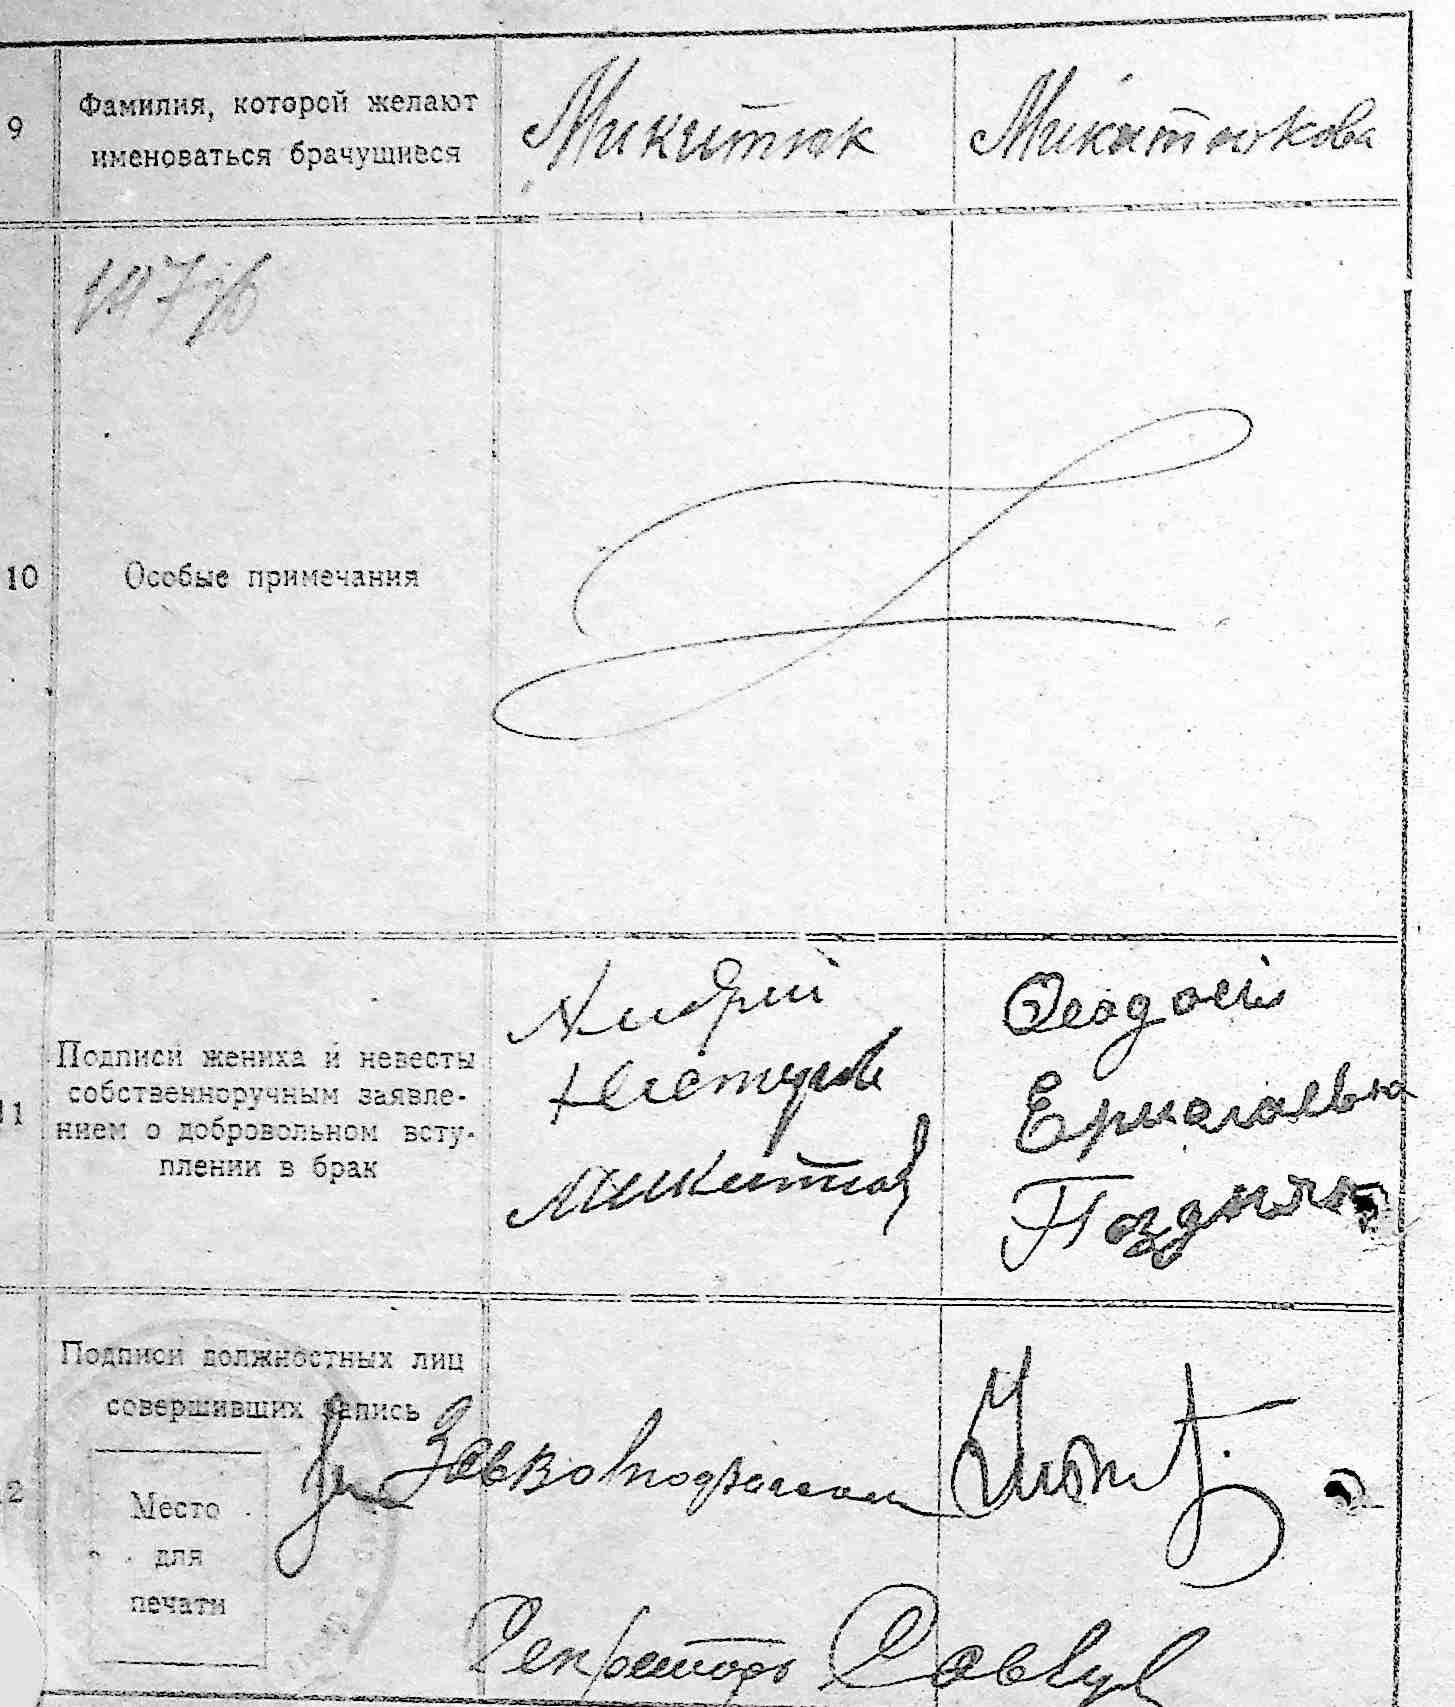 9
Фамилия, которой желают
именоваться брачущиеся
Микитюк
Микитюкова
10
Особые примечания
11
Подписи жениха и невесты
собственноручным заявле-
нием о добровольном всту-
плении в брак
Андрий
Микитюк
Феодосия
Ермолаевна
Поздняк
Подписи должностных лиц
совершивших запись
Место
для
печати
Секретарь